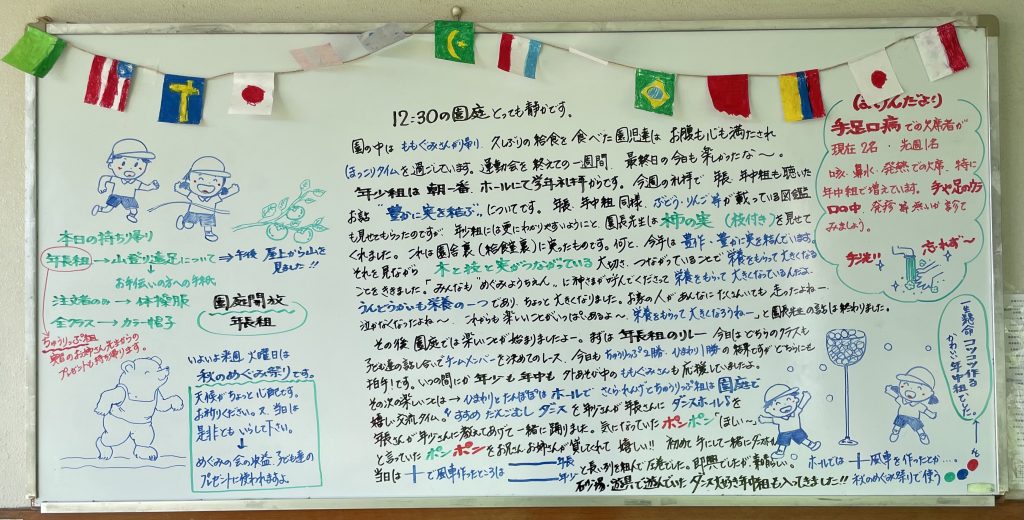 12:30の園庭 とっても静かです。
園の中は ももぐみさんが帰り 久しぶりの給食を食べた園児達は お腹も心も満たされ
ほっこりタイムを過ごしています。運動会を終えての一週間 最終日の今日も楽しかったな～。
年少組は 朝一番、ホールにて学年礼拝からです。今週の礼拝で 年長、年中組も聴いた
お話 "豊かに実を結ぶ"についてです。年長、年中組同様、ぶどう・りんご等が載っている図鑑
も見せてもらったのですが 年少組には更にわかりやすいようにと 園長先生は 柿の実(枝付き)を見せて
くれました。これは園舎裏(給食室裏)に実ったものです。何と、今年は豊作・豊かに実を結んでいます。
それを見ながら 木と枝と実がつながっている大切さ、つながっていることで栄養をもらって大きくなる
ことをききました。「みんなも めぐみようちえん に神さまが呼んでくださって 栄養をもらって大きくなっているんだよ。
うんどうかいも栄養の一つであり、ちょっと大きくなりました。お客の人があんなにたくさんいても 走ったよねー、
泣かなくなったよね～、これからも楽しいことがいっぱいあるよ～、栄養をもらって大きくなろうねー」と園長先生の話は終わりました。
その後 園庭では楽しいことが始まりましたよー。まずは 年長組のリレー 今日はどちらのクラスも
子ども達の話し合いでチームメンバーを決めてのレース、今日も ちゅうりっぷ2勝・ひまわり1勝の結果ですがどちらにも
拍手です。いつの間にか年少も年中も 外あそび中の ももぐみさんも応援していましたよ。
その次の楽しいことは→ひまわりとたんぽぽはホールで さくら れんげとちゅうりっぷ組は園庭で
嬉しい交流タイム。
年長さんが年少さんに教えてあげて一緒に踊りました。気になっていたポンポン"ほしい～"
と言っていたポンポンをお兄さんお姉さんが貸してくれて 嬉しい!! 初めて手にして一緒にダンス
当日は 十で風車作ったところは 年長 年少 と長い列を組んで圧巻でした。即興でしたが素晴らしい。
砂場・遊具で遊んでいた ダンス大好き年中組も入ってきました!!
本日の持ち帰り
年長組→山登り遠足について→午後 屋上から山を見ました!!
お手伝いの方への手紙
注文者のみ→体操服
全クラス→カラー帽子
園庭開放
年長組
ちゅうりっぷ組
実習のお姉さん先生からの
プレゼントも持ち帰ります。
いよいよ来週 火曜日は
秋のめぐみ祭りです。
天候がちょっと心配です。
お祈りください。又、当日は
是非ともいらして下さい。
めぐみの会の収益、子ども達の
プレゼントに使われますよ。
ほけんだより
手足口病での欠席者が
現在2名・先週1名
咳・鼻水・発熱での欠席、特に
年中組で増えています。手や足のうら
口の中、発疹等無いか診て
みましょう。
手洗い
忘れず～
一生懸命コツコツ作る
かわいい年中組でした。
ホールでは十風車を作ったとか…。
秋のめぐみ祭りで使う